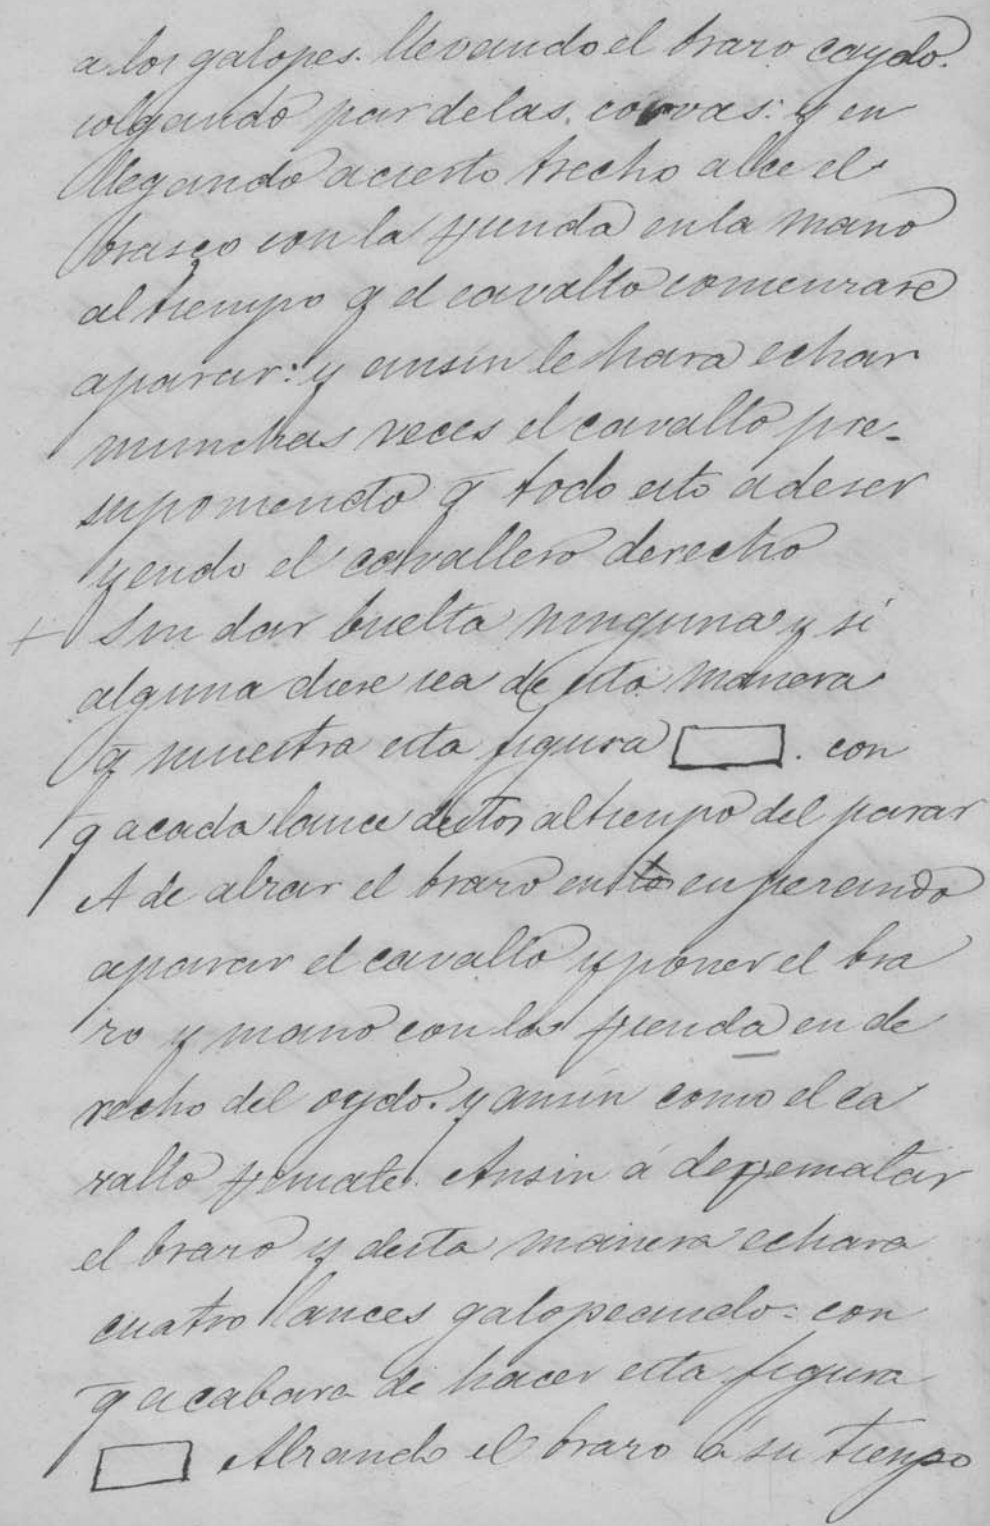 a los galopes. llevando el brazo caydo.
colgando par de las. corvas: y en
llegando acierto trecho alce el
brasço con la rrienda enla mano
al tiempo q el cavallo comenzare
aparar: y ansin le hara echar
munchas veces el cavallo pre-
suponiendo q todo esto adeser
yendo el cavallero derecho
+ sin dar buelta ninguna y si
alguna diere sea de esta manera
q muestra esta figura ▭. con
q acada lance destos altiempo del parar
A de alzar el brazo en enpezando
aparar el cavallo y poner el bra
zo y mano con la rrienda en de
recho del oydo. y ansin como el ca
vallo rremate. Ansin á de rrematar
el brazo y desta manera echara
cuatro lances galopeando: con
q acabara de hacer esta figura
▭ Alzando el brazo á su tienpo